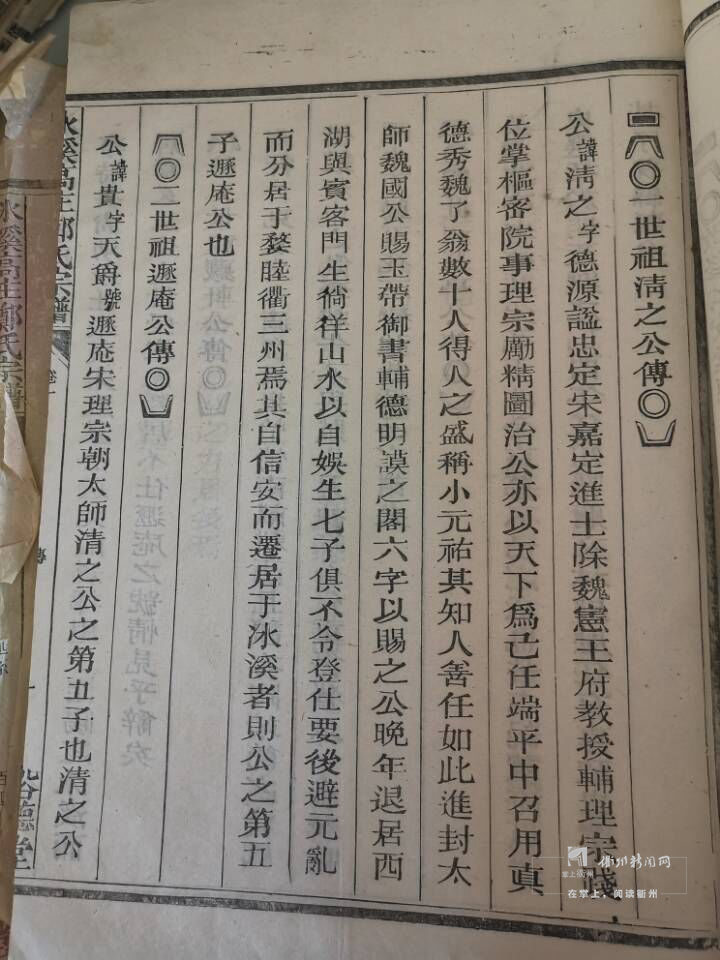 一世祖淸之公傳
公諱淸之字德源謚忠定宋嘉定進士除魏憲王府教授輔理宗踐
位掌樞密院事理宗勵精圖治公亦以天下爲己任端平中召用真
德秀魏了翁數十人得人之盛稱小元祐其知人善任如此進封太
師魏國公賜玉帶御書輔德明謨之閣六字以賜之公晚年退居西
湖與賓客門生徜徉山水以自娛生七子俱不令登仕要後避元亂
而分居于婺睦衢三州焉其自信安而遷居于冰溪者則公之第五
子遯庵公也
二世祖遯庵公傳
公諱貴字天爵號遯庵宋理宗朝太師清之公之第五子也清之公
氏宗譜
卷一
傳
一
衢州新闻网
掌上衢州
在掌上，阅读衢州